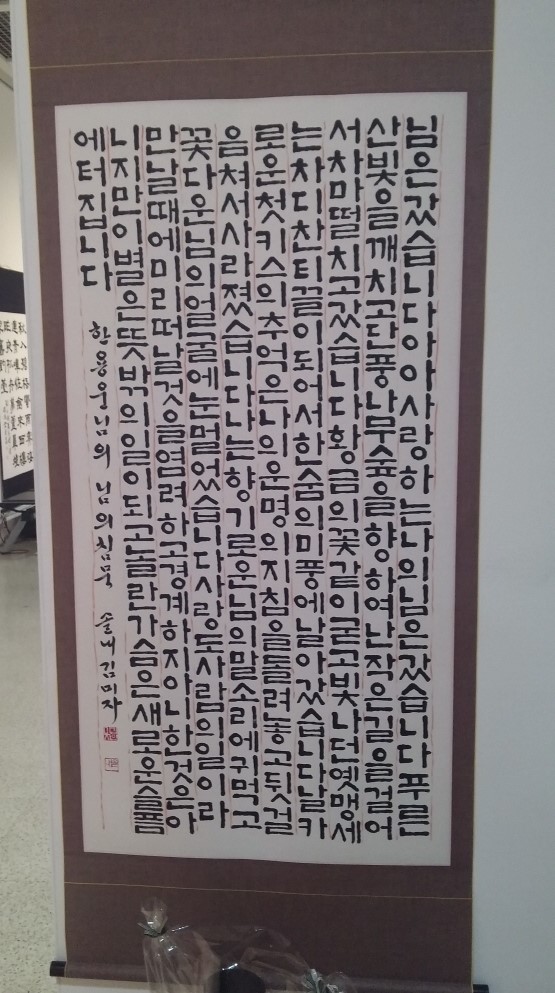 님은갔습니다아아사랑하는나의님은갔습니다푸른
산빛을깨치고단풍나무숲을향하여난작은길을걸어
서차마떨치고갔습니다황금의꽃같이굳고빛나던옛맹세
는차디찬티끌이되어서한숨의미풍에날아갔습니다날카
로운첫키스의추억은나의운명의지침을돌려놓고뒷걸
음쳐서사라졌습니다나는향기로운님의말소리에귀먹고
꽃다운님의얼굴에눈멀었습니다사랑도사람의일이라
만날때에미리떠날것을염려하고경계하지아니한것은아
니지만이별은뜻밖의일이되고놀란가슴은새로운슬픔
에터집니다 한용운님의 님의침묵 솔내김미자